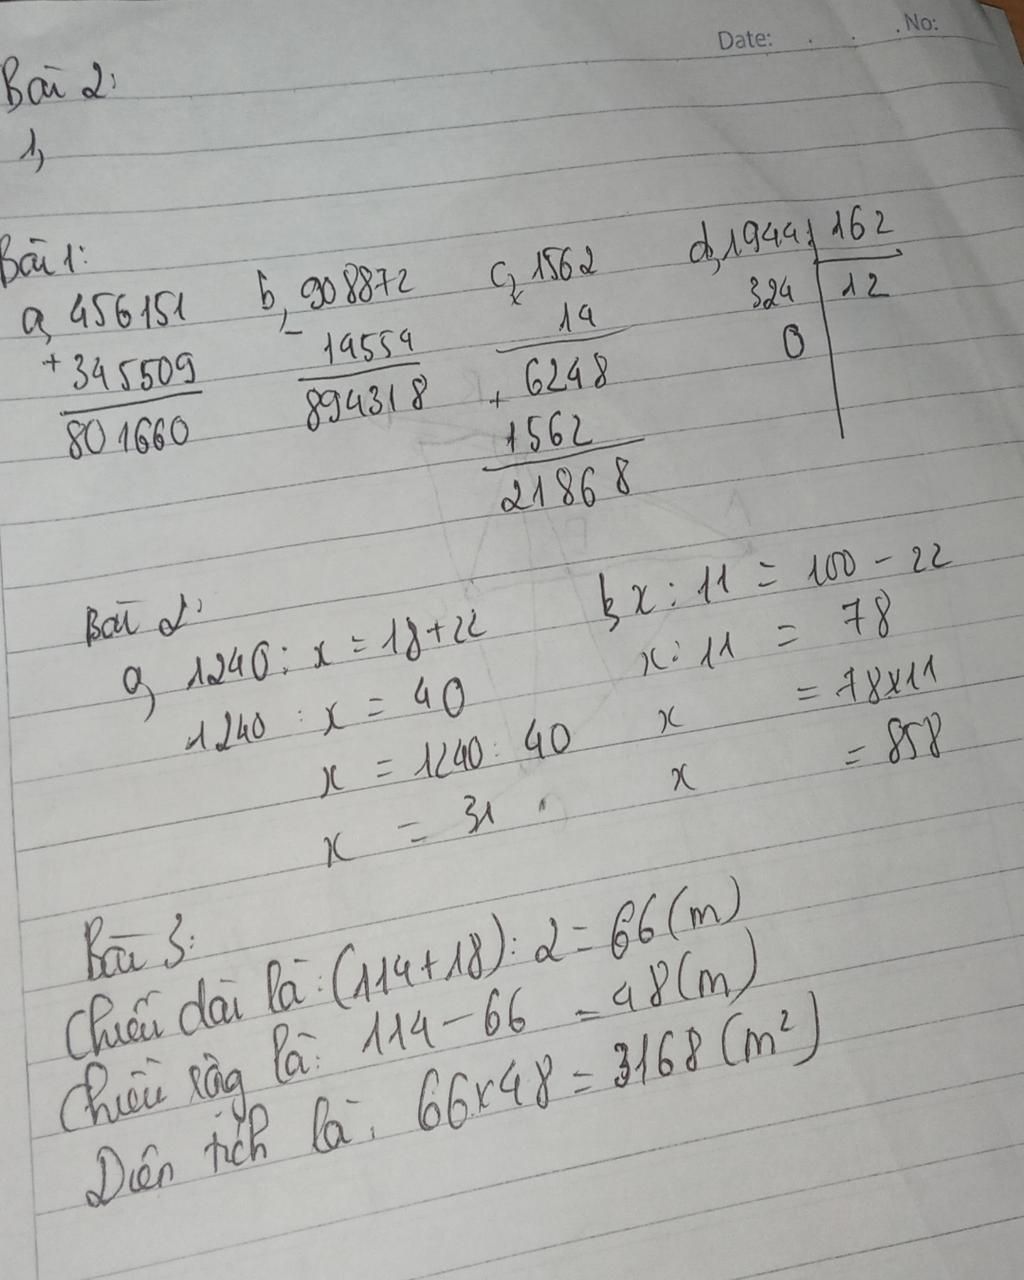 Date: . . . No:
Bài 2:
1,
Bài 1:
a, 456151
+ 345509
801660
b, 908872
- 14554
894318
c, 1562
x 14
6248
+ 1562
21868
d, 1944 : 162
324 12
0
Bài 2:
a, 1240 : x = 18+22
1240 : x = 40
x = 1240 : 40
x = 31
b, x : 11 = 100 - 22
x : 11 = 78
x = 78x11
x = 858
Bài 3:
Chiều dài là : (114+18) : 2 = 66 (m)
Chiều rộg là : 114 - 66 = 48 (m)
Diện tích là : 66x48 = 3168 (m²)